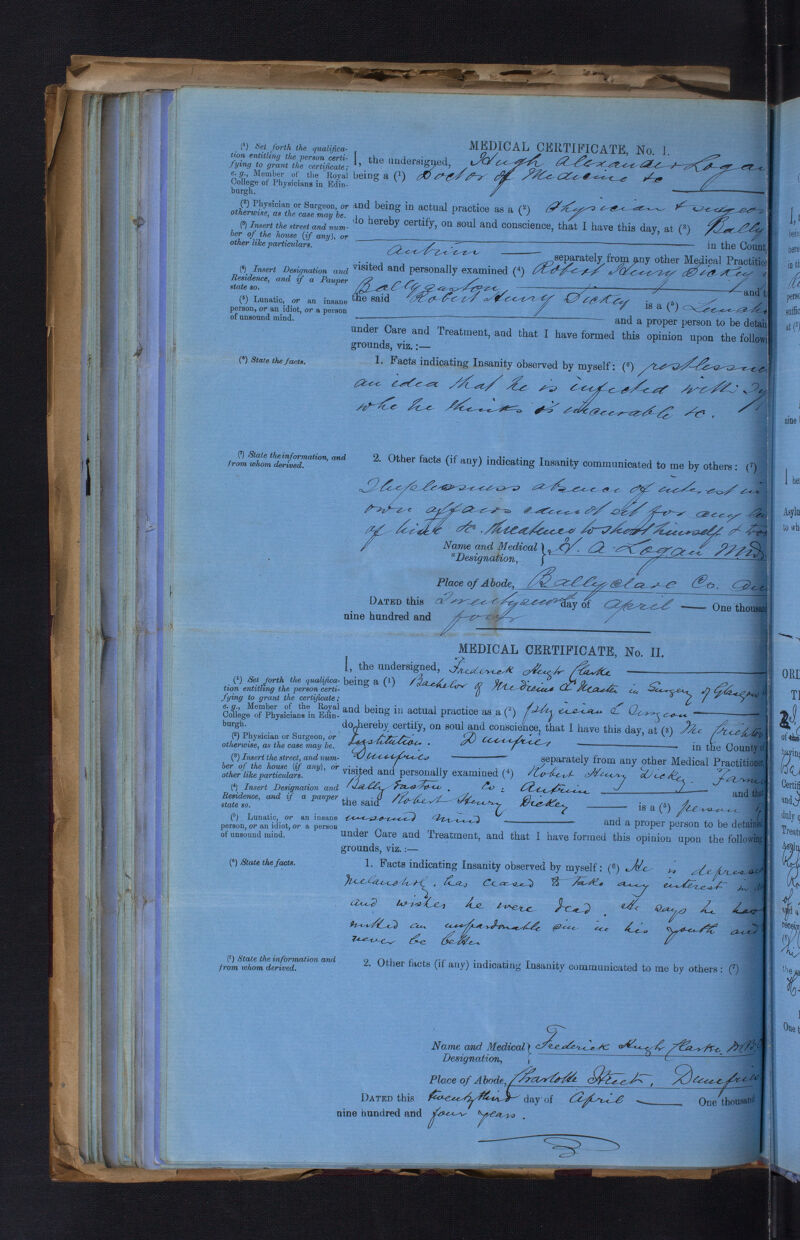 MEDICAL CERTIFICATE, No. I.
(¹) Set forth the qualifica-
tion entitling the person certi-
fying to grant the certificate;
e. g., Member of the Royal
College of Physicians in Edin-
burgh.
I, the undersigned, Hugh Alexander Logan
being a (¹) Doctor of Medicine &c
(²) Physician or Surgeon, or
otherwise, as the case may be.
and being in actual practice as a (²) Physician & surgeon
(³) Insert the street and num-
ber of the house (if any), or
other like particulars.
do hereby certify, on soul and conscience, that I have this day, at (³) Bally
in the Count
Antrim separately from any other Medical Practitio
(⁴) Insert Designation and
Residence, and if a Pauper
state so.
visited and personally examined (⁴) Robert Henry Dickey
Ballyeaston and t
(⁵) Lunatic, or an insane
person, or an idiot, or a person
of unsound mind.
the said Robert Henry Dickey is a (⁵) Lunatic
and a proper person to be detain
under Care and Treatment, and that I have formed this opinion upon the followi
grounds, viz.:—
(⁶) State the facts.
1. Facts indicating Insanity observed by myself: (⁶) restlessne
an idea that he is infected with
who he thinks is incurable &c.
(⁷) State the information, and
from whom derived.
2. Other facts (if any) indicating Insanity communicated to me by others: (⁷)
Sleeplessness absence of interest in
own affairs cannot sit for any
of time &c. threatened to shoot himself &
Name and Medical
*Designation,
H. A. Logan M.D
Place of Abode, Ballyclare Co. An
DATED this Twentysecond day of April One thousan
nine hundred and four
MEDICAL CERTIFICATE, No. II.
I, the undersigned, Frederick Hugh Clarke
(¹) Set forth the qualifica-
tion entitling the person certi-
fying to grant the certificate;
e. g., Member of the Royal
College of Physicians in Edin-
burgh.
being a (¹) Bachelor of Medicine & Master in Surgery of Glasgow
and being in actual practice as a (²) Physician & Surgeon
(²) Physician or Surgeon, or
otherwise, as the case may be.
do hereby certify, on soul and conscience, that I have this day, at (³) The Crichton
Institution. Dumfries in the County o
(³) Insert the street, and num-
ber of the house (if any), or
other like particulars.
Dumfries separately from any other Medical Practitioner
visited and personally examined (⁴) Robert Henry Dickey. Farme
(⁴) Insert Designation and
Residence, and if a pauper
state so.
Bally Easton. Co: Antrim and that
the said Robert Henry Dickey is a (⁵) person
(⁵) Lunatic, or an insane
person, or an idiot, or a person
of unsound mind.
unsound mind and a proper person to be detained
under Care and Treatment, and that I have formed this opinion upon the following
grounds, viz.:—
(⁶) State the facts.
1. Facts indicating Insanity observed by myself: (⁶) He is depressed
melancholy, has ceased to take any interest in
and wishes he were dead. He says he has
mitted an unpardonable sin in his youth and
never be better
(⁷) State the information and
from whom derived.
2. Other facts (if any) indicating Insanity communicated to me by others: (⁷)
Name and Medical
Designation,
Frederick Hugh Clarke. M.B.
Place of Abode, Charlotte Street, Dumfries
DATED this twenty third day of April One thousand
nine hundred and four years.